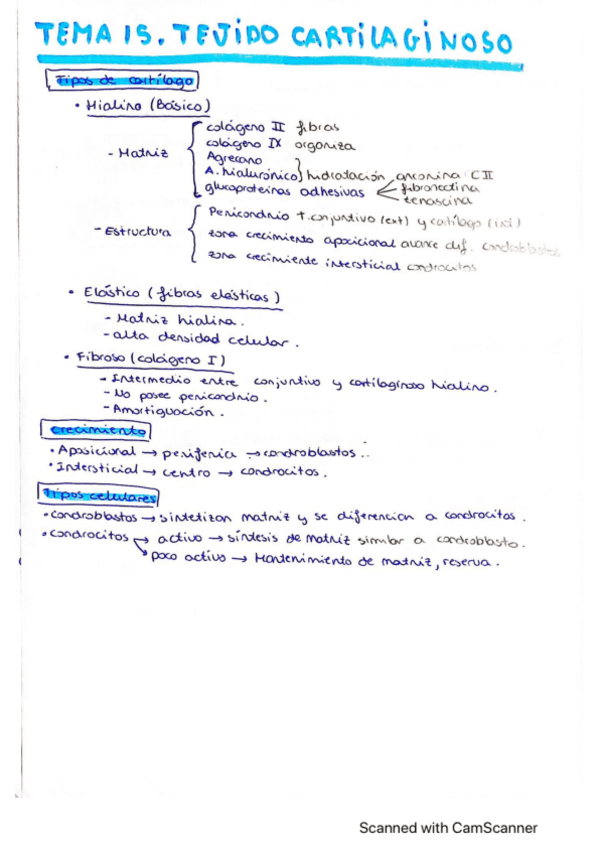 TEMA 15. TEJIDO CARTILAGINOSO
Tipos de cartílago
• Hialino (Básico)
- Matriz
colágeno II fibras
colágeno IX organiza
Agrecano
A. hialurónico } hidratación, CII
glucoproteínas adhesivas
fibronectina
tenascina
- Estructura
Pericondrio t. conjuntivo (ext) y cartílago (int)
zona crecimiento aposicional avance dif. condroblastos
zona crecimiento intersticial condrocitos
• Elástico (fibras elásticas)
- Matriz hialina.
- alta densidad celular.
• Fibroso (colágeno I)
- Intermedio entre conjuntivo y cartilaginoso hialino.
- No posee pericondrio.
- Amortiguación.
Crecimiento
• Aposicional → periferia → condroblastos..
• Intersticial → centro → condrocitos.
Tipos celulares
• condroblastos → sintetizan matriz y se diferencian a condrocitos.
• condrocitos → activo → síntesis de matriz similar a condroblasto.
→ poco activo → Mantenimiento de matriz, reserva.
Scanned with CamScanner